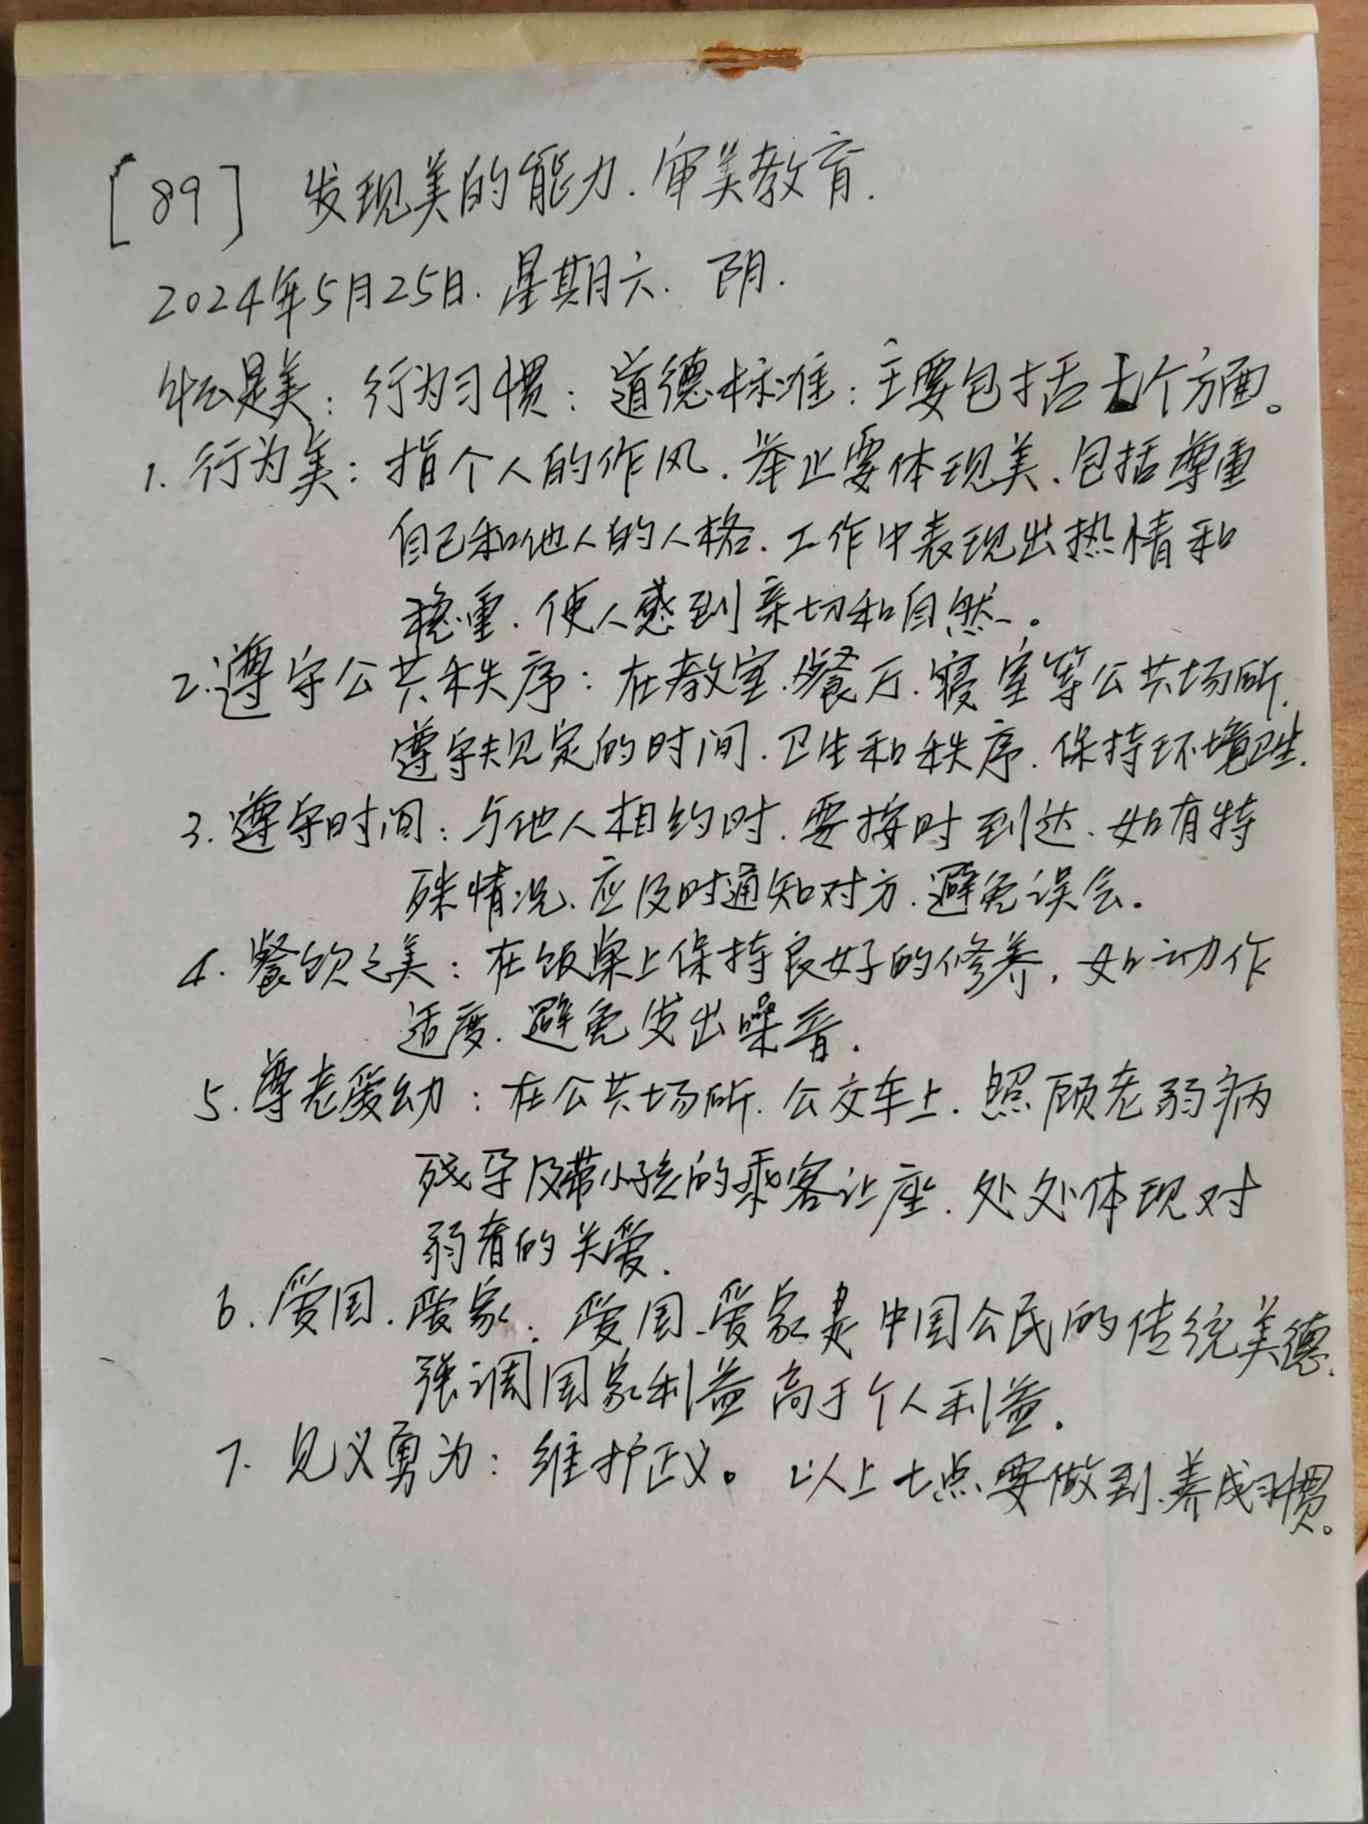 [89] 发现美的能力.审美教育.
2024年5月25日.星期六.阴.
什么是美:行为习惯:道德标准:主要包括七个方面。
1.行为美:指个人的作风.举止要体现美、包括尊重
自己和他人的人格.工作中表现出热情和
稳重.使人感到亲切和自然。
2.遵守公共秩序:在教室.餐厅.寝室等公共场所.
遵守规定的时间.卫生和秩序.保持环境卫生.
3.遵守时间:与他人相约时.要按时到达、如有特
殊情况、应及时通知对方.避免误会.
4.餐饮之美:在饭桌上保持良好的修养,如动作
适度.避免发出噪音.
5.尊老爱幼:在公共场所.公交车上.照顾老弱病
残孕及带小孩的乘客让座.处处体现对
弱者的关爱.
6.爱国.爱家:爱国、爱家是中国公民的传统美德.
强调国家利益高于个人利益.
7.见义勇为:维护正义。以上七点要做到、养成习惯。